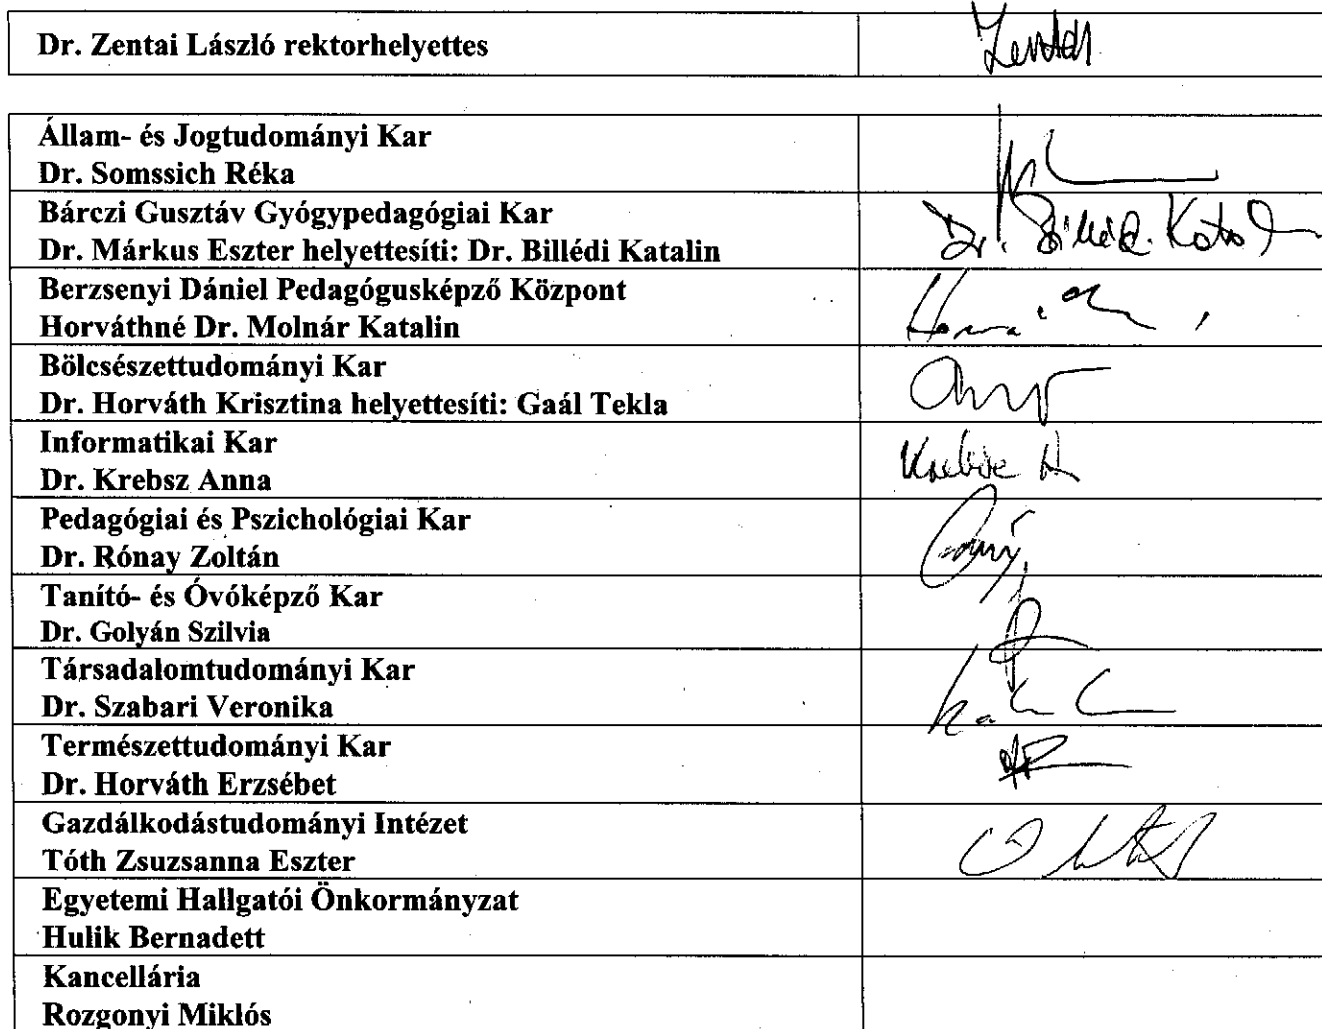 Dr. Zentai László rektorhelyettes
Zentai
Állam- és Jogtudományi Kar
Dr. Somssich Réka
Bárczi Gusztáv Gyógypedagógiai Kar
Dr. Márkus Eszter helyettesíti: Dr. Billédi Katalin
Dr. Billédi Katal
Berzsenyi Dániel Pedagógusképző Központ
Horváthné Dr. Molnár Katalin
Bölcsészettudományi Kar
Dr. Horváth Krisztina helyettesíti: Gaál Tekla
Informatikai Kar
Dr. Krebsz Anna
Pedagógiai és Pszichológiai Kar
Dr. Rónay Zoltán
Tanító- és Óvóképző Kar
Dr. Golyán Szilvia
Társadalomtudományi Kar
Dr. Szabari Veronika
Természettudományi Kar
Dr. Horváth Erzsébet
Gazdálkodástudományi Intézet
Tóth Zsuzsanna Eszter
Egyetemi Hallgatói Önkormányzat
Hulik Bernadett
Kancellária
Rozgonyi Miklós